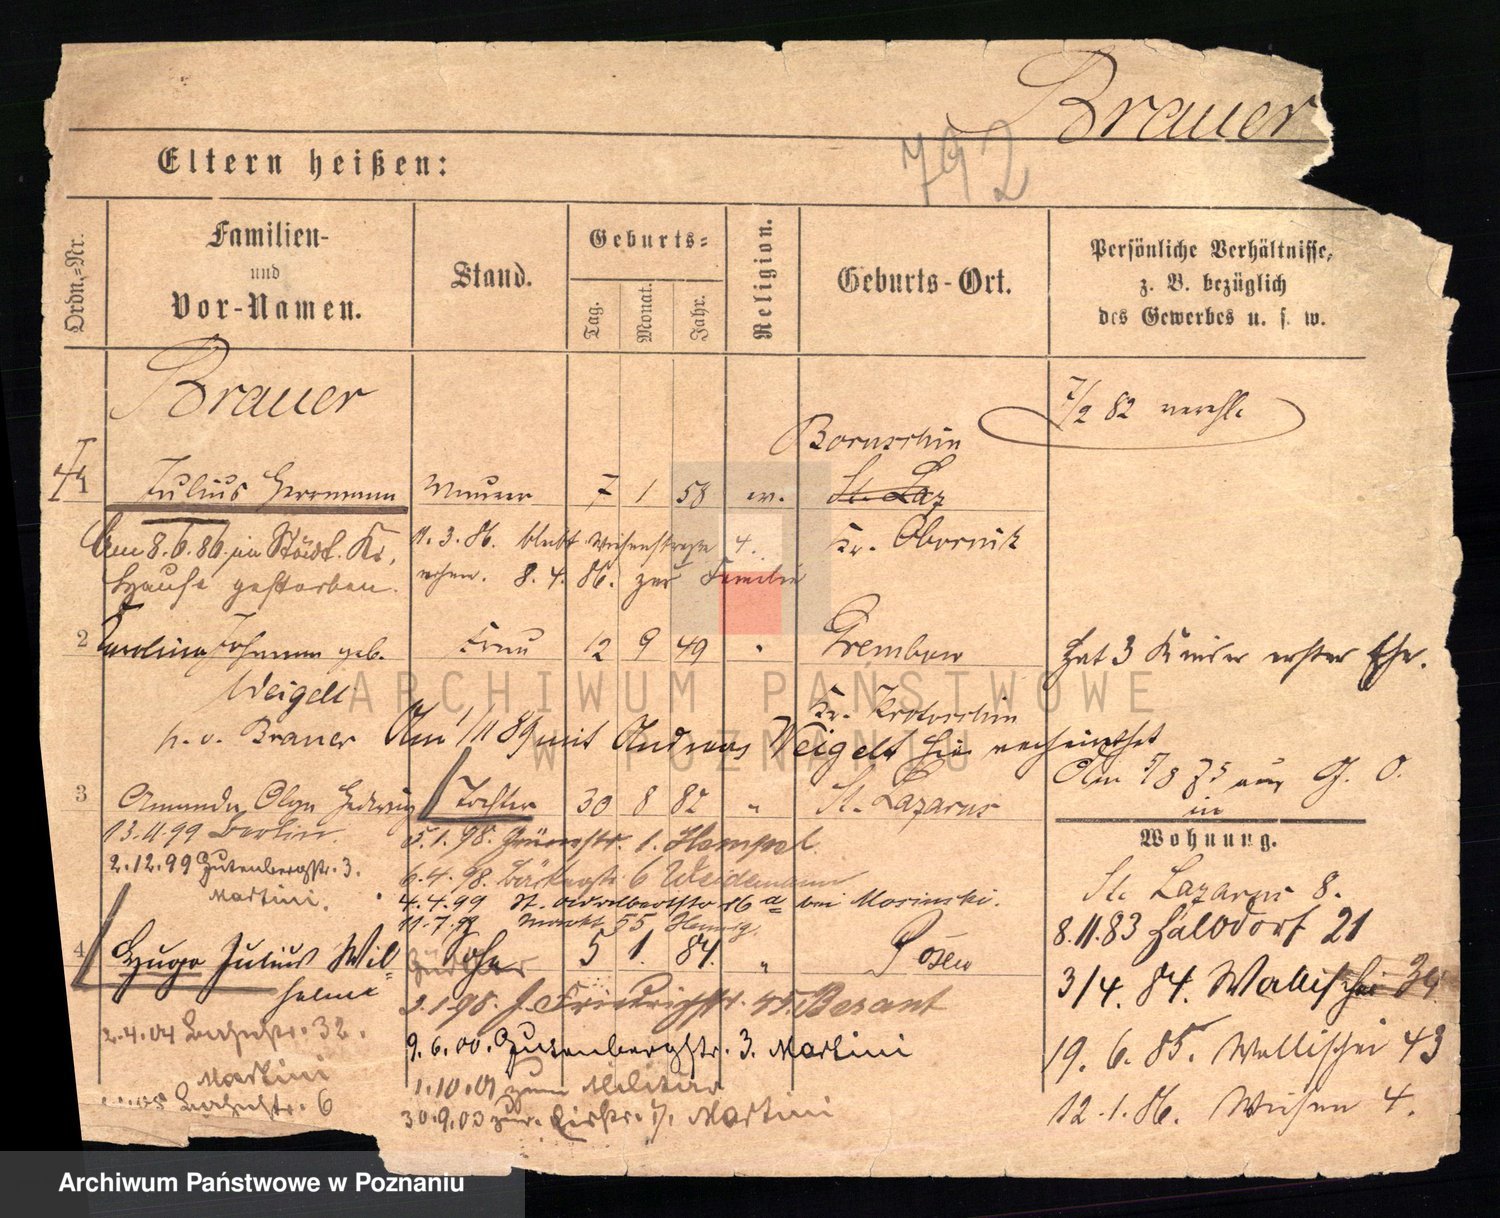 Brauer
792
Eltern heißen:
Ordn.-Nr.
Familien-
und
Vor-Namen.
Stand.
Geburts-
Tag.
Monat.
Jahr.
Religion.
Geburts-Ort.
Persönliche Verhältnisse,
z. B. bezüglich
des Gewerbes u. s. w.
Brauer
7/2 82 verehl.
Boruschin
Julius Herrmann Maurer 7 1 58 ev. St. Laz
Kr. Obornik
Am 8.6.86. im Städt. Kr.
Hause gestorben.
11.3.86. bleibt Wiesenstrasse 4.
8.4.86. zur Familie
2 Karolina Johanna geb. Frau 12 9 49 " Grembow
Weigelt
Kr. Krotoschin
Hat 3 Kinder erster Ehe.
p. v. Brauer Am 1/11 89 mit Andreas Weigelt hier verheirathet
Am 5/8 75 aus G. O.
in
3 Amanda Olga Hedwig Tochter 30 8 82 " St. Lazarus
13.11.99 Berlin.
2.12.99 Gutenbergstr. 3.
Martini.
5.1.98. 1. Hempel
6.4.98. 6 Weidemann
4.4.99 St. Adalbertstr 26a bei
11.7.99 Markt 55
4 Hugo Julius Wil- Sohn 5 1. 84. " Posen
helm
2.1.98. Gr. Friedrichstr. 25. Bezant
9.6.00. Gutenbergstr. 3. Martini
1.10.01 zum Militär
30.9.03 zur. 7. Martini
2.4.04 32.
Martini
6
Wohnung.
St. Lazarus 8.
8.11.83 Halbdorf 21
3/4. 84. Wallischei 39
19. 6. 85. Wallischei 43
12. 1. 86. Wiesen 4.
ARCHIWUM PAŃSTWOWE
W POZNANIU
Archiwum Państwowe w Poznaniu